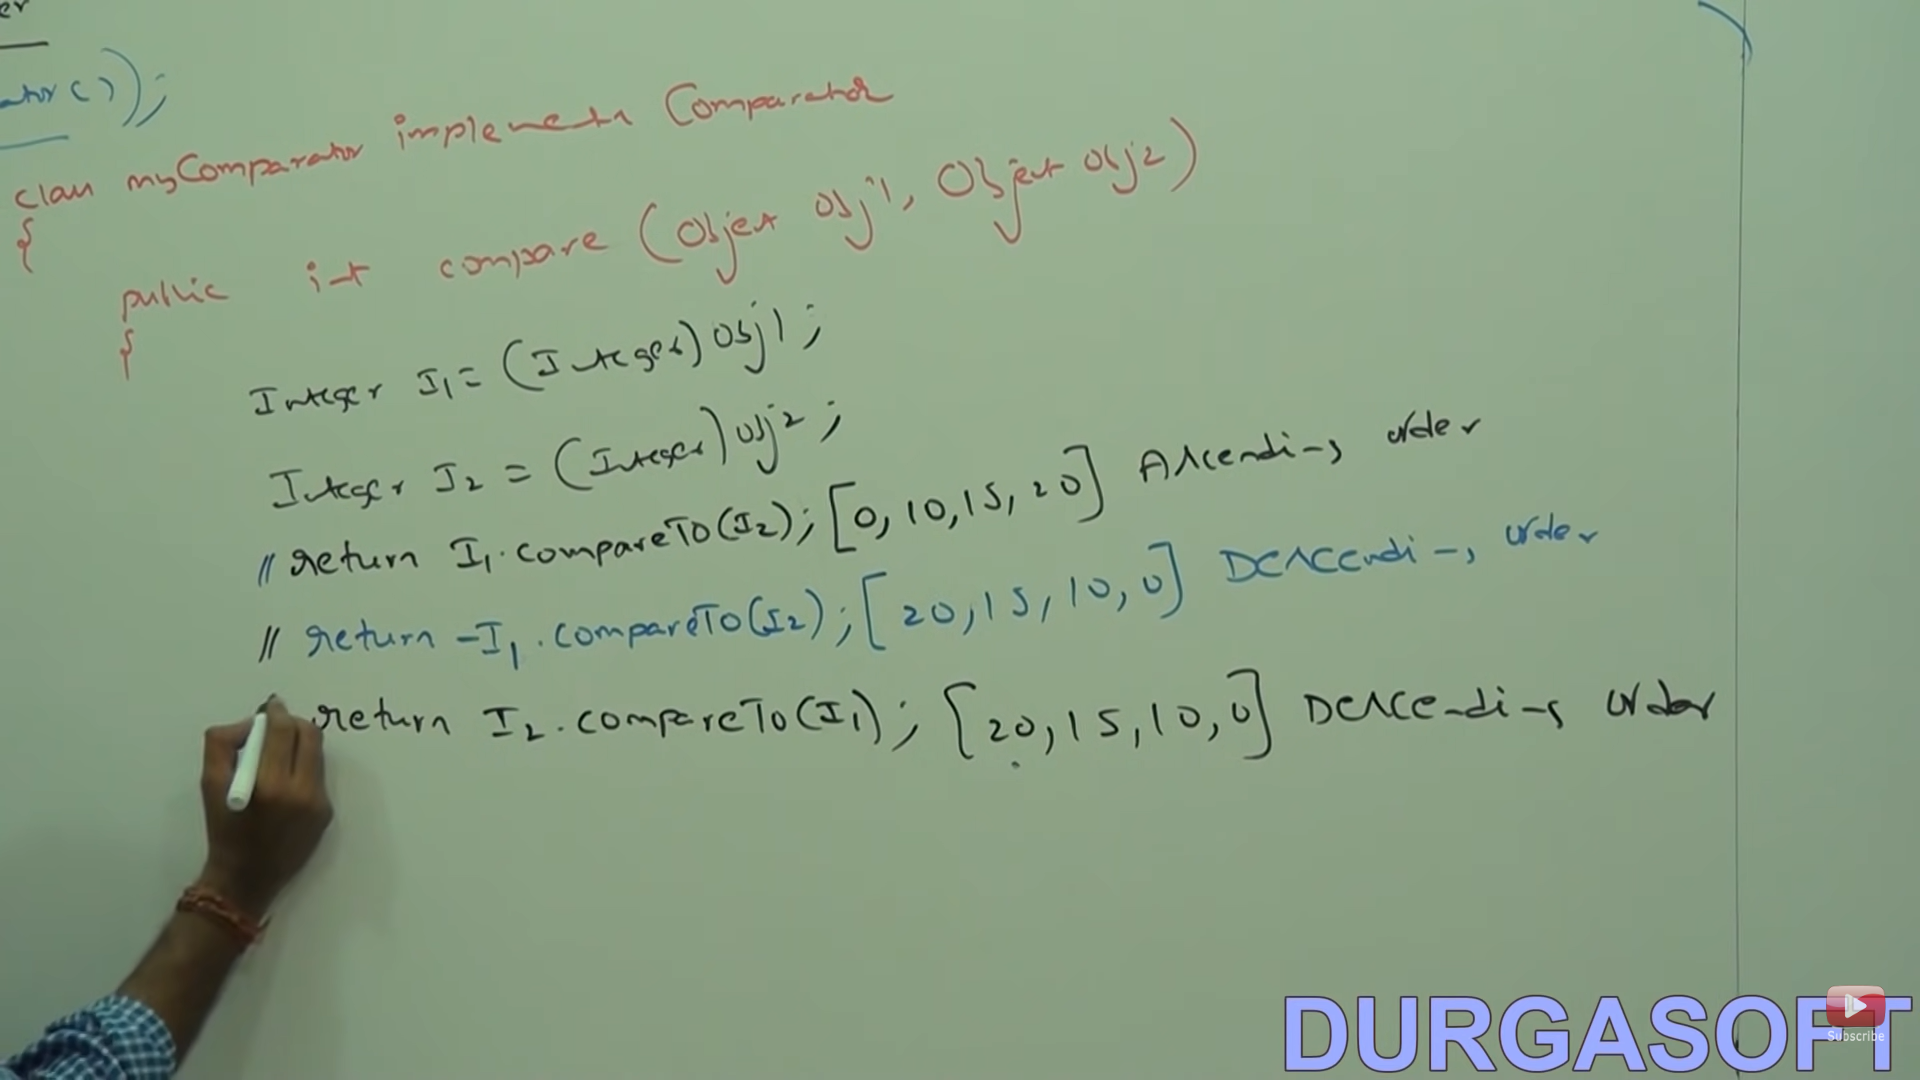 er
ator());
class myComparator implements Comparator
{
public int compare (Object obj1, Object obj2)
{
Integer I1 = (Integer) obj1;
Integer I2 = (Integer) obj2;
// return I1.compareTo(I2); [0, 10, 15, 20] Ascending order
// return -I1.compareTo(I2); [20, 15, 10, 0] Descending order
return I2.compareTo(I1); [20, 15, 10, 0] Descending order
DURGASOFT
Subscribe